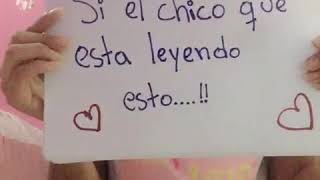 Si el chico que
esta leyendo
esto....!!